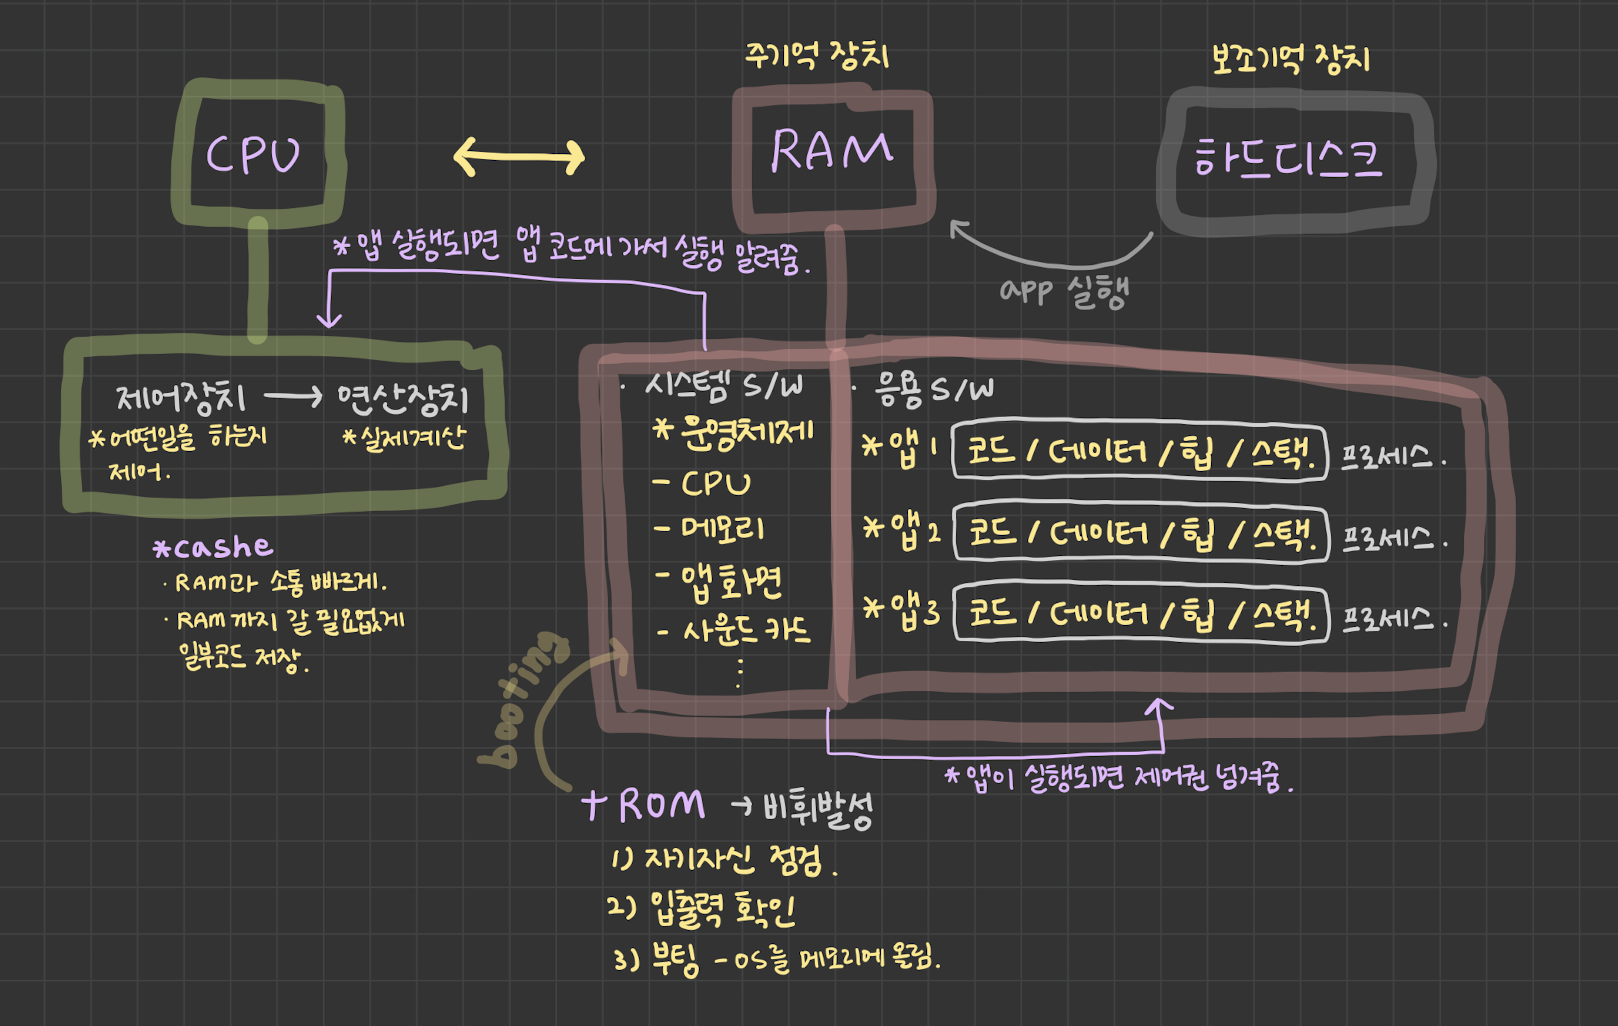 주기억 장치
보조기억 장치
CPU
RAM
하드디스크
* 앱 실행되면 앱 코드에 가서 실행 알려줌.
app 실행
제어장치 → 연산장치
* 어떤일을 하는지
제어.
* 실제계산
* cashe
· RAM과 소통 빠르게.
· RAM 까지 갈 필요없게
일부코드 저장.
· 시스템 S/W
* 운영체제
- CPU
- 메모리
- 앱 화면
- 사운드 카드
⋮
· 응용 S/W
* 앱 1 코드 / 데이터 / 힙 / 스택. 프로세스.
* 앱 2 코드 / 데이터 / 힙 / 스택. 프로세스.
* 앱 3 코드 / 데이터 / 힙 / 스택. 프로세스.
booting
* 앱이 실행되면 제어권 넘겨줌.
+ ROM → 비휘발성
1) 자기자신 점검.
2) 입출력 확인
3) 부팅 - OS를 메모리에 올림.